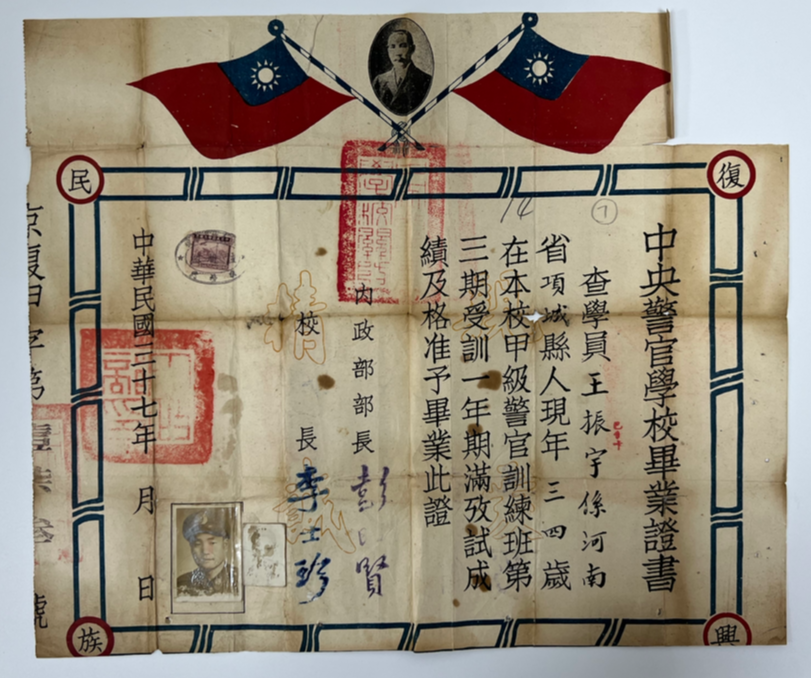 復興民族
中央警官學校畢業證書
查學員王振宇係河南
省項城縣人現年三四歲
在本校甲級警官訓練班第
三期受訓一年期滿攷試成
績及格准予畢業此證
內政部部長彭昭賢
校長李士珍
中華民國三十七年 月 日
精誠
號
14
7